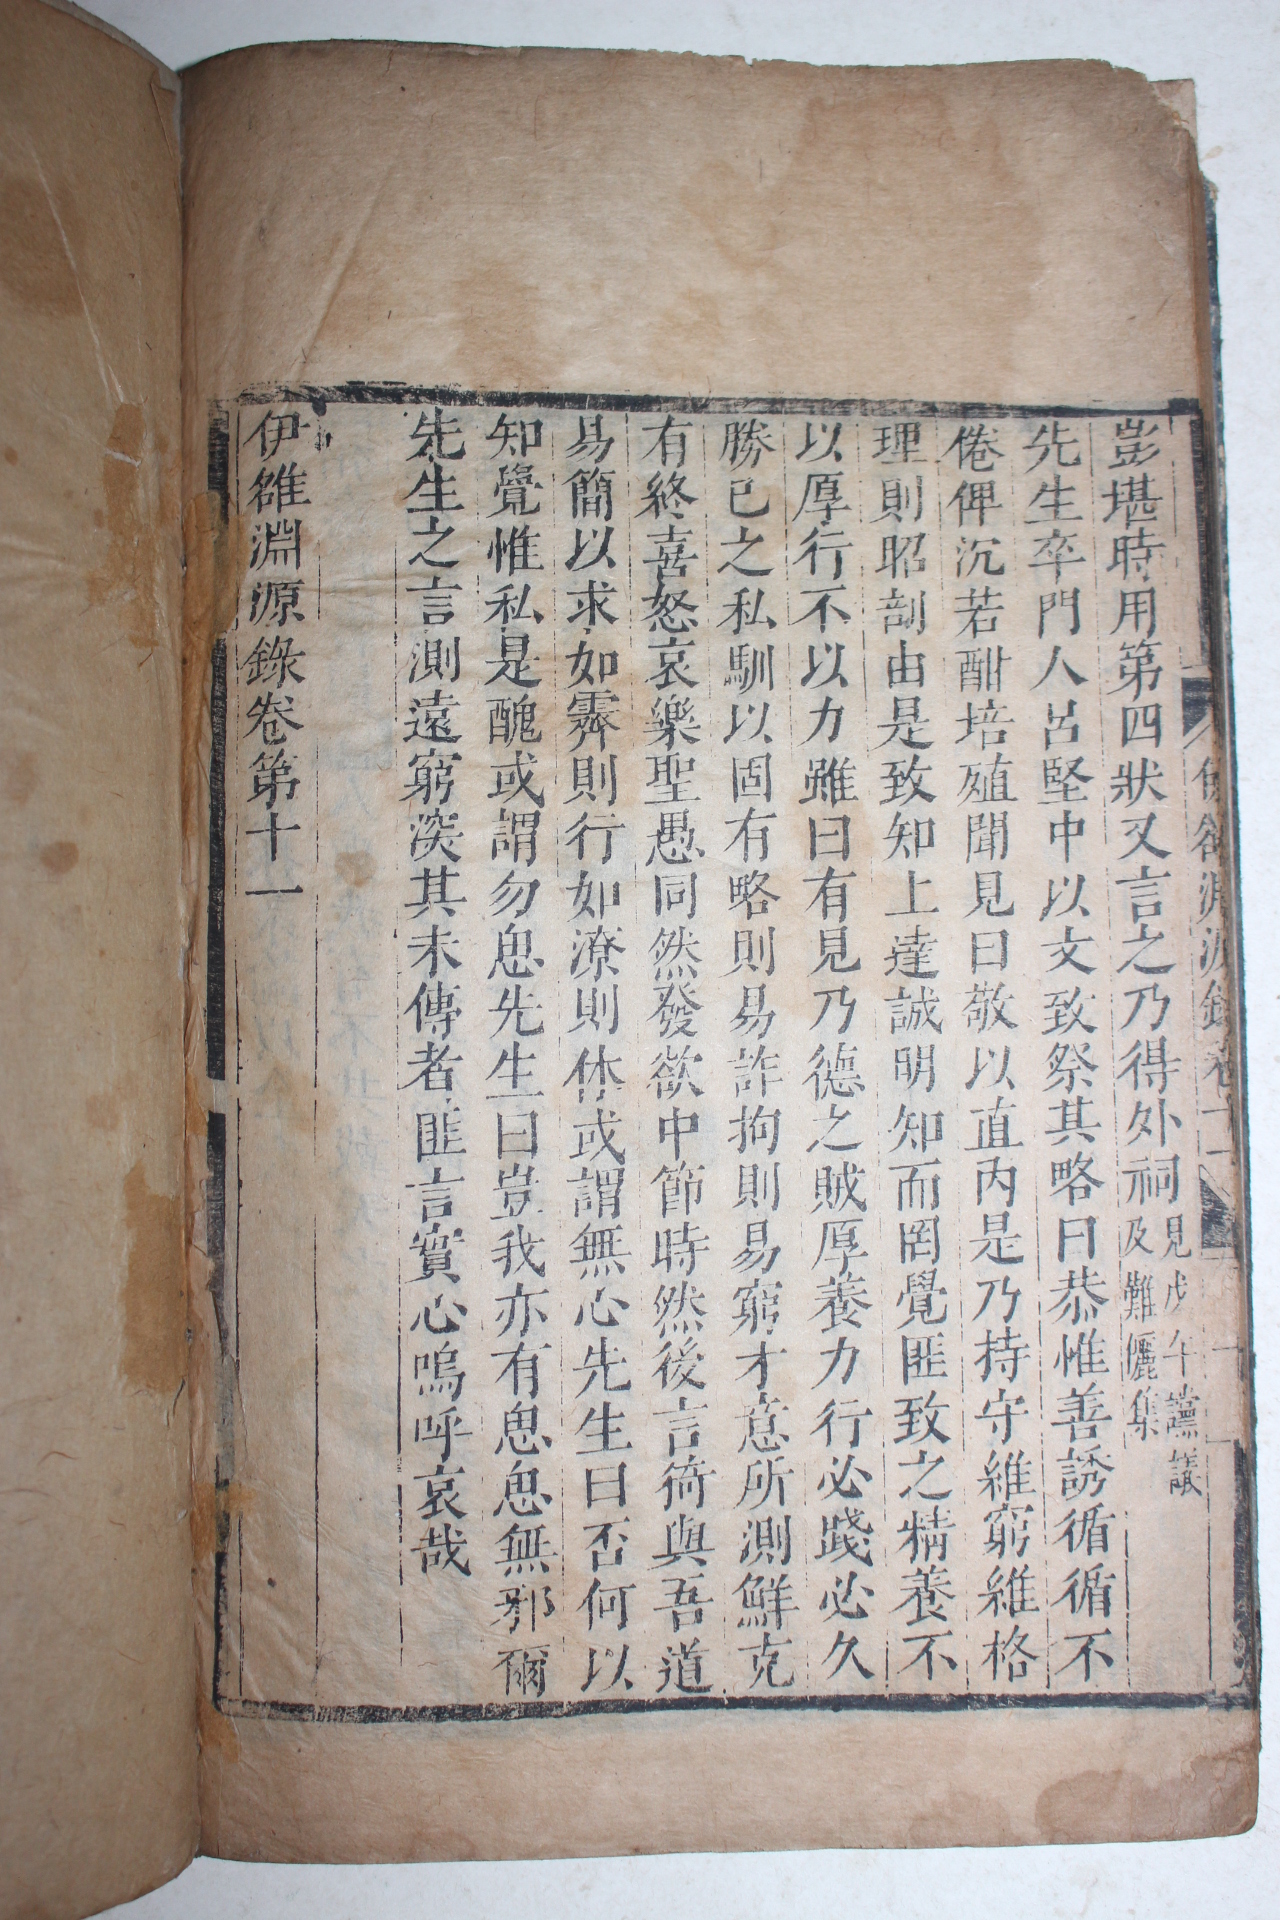 彭堪時用第四狀又言之乃得外祠見戊午讜議及難儷集
先生卒門人呂堅中以文致祭其略曰恭惟善誘循循不
倦俾沉若酣培殖聞見曰敬以直內是乃持守維窮維格
理則昭剖由是致知上達誠明知而罔覺匪致之精養不
以厚行不以力雖曰有見乃德之賊厚養力行必踐必久
勝已之私馴以固有略則易詐拘則易窮才意所測鮮克
有終喜怒哀樂聖愚同然發欲中節時然後言猗與吾道
易簡以求如霽則行如潦則休或謂無心先生曰否何以
知覺惟私是醜或謂勿息先生曰豈我亦有息息無邪爾
先生之言測遠窮深其未傳者匪言實心嗚呼哀哉
伊雒淵源錄卷第十一